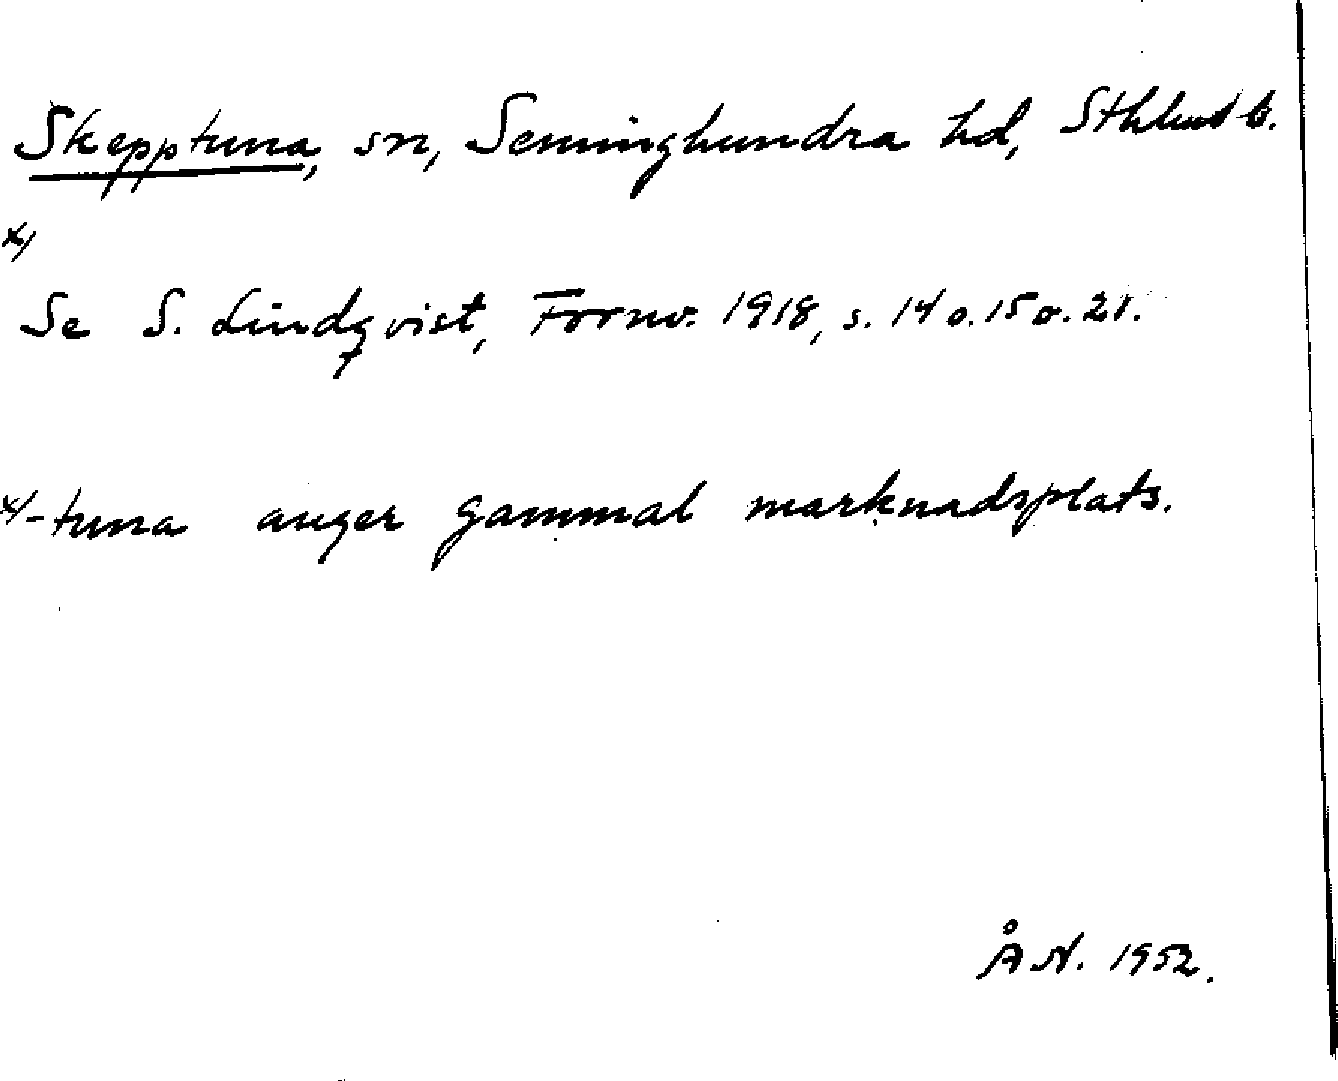 Skepptuna, sn, Seminghundra hd, Sthlms l.
x/
Se S. Lindqvist, Fornv. 1918, s. 14 o. 15 o. 21.
x/ -tuna anger gammal marknadsplats.
ÅN. 1952.